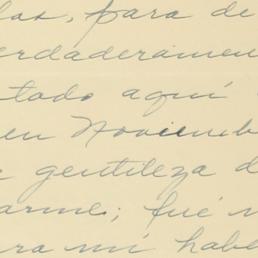 las, para de
erdaderamen
tado aquí
en Noviemb
gentileza d
arme; fué
ra mí habe